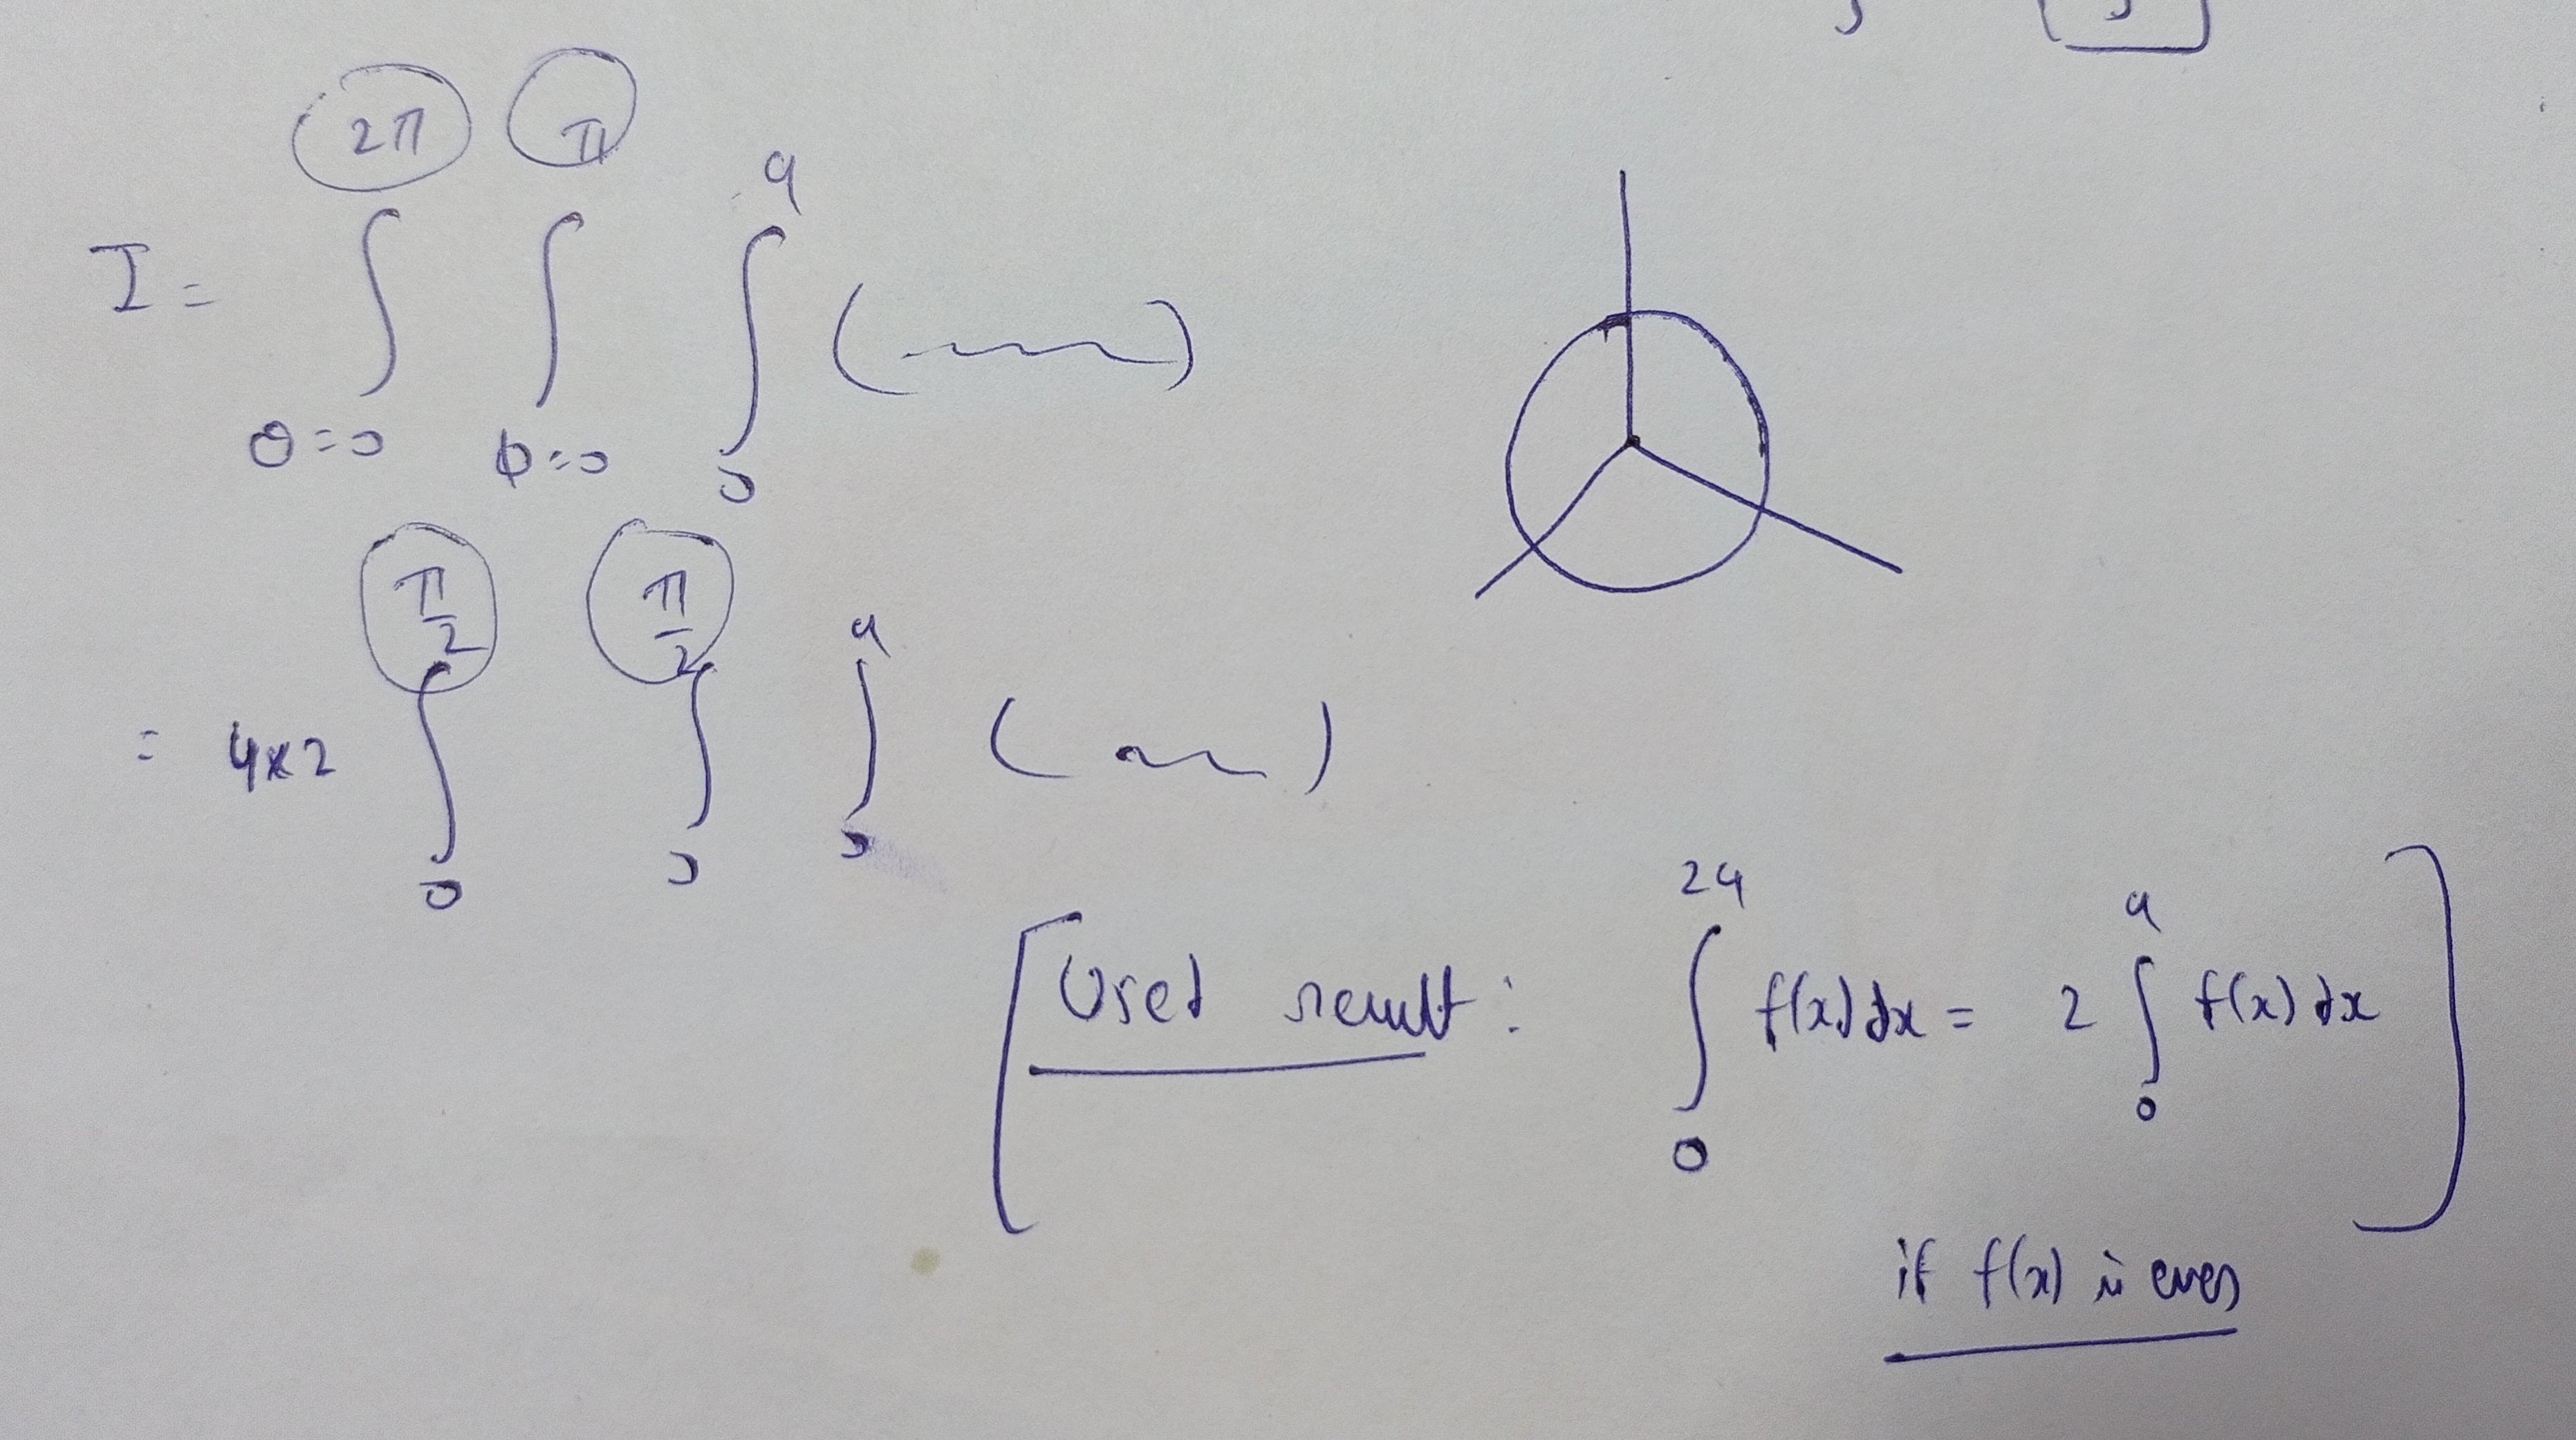 I = ∫_{θ=0}^{2π} ∫_{ϕ=0}^{π} ∫_{0}^{a} ( )
= 4x2 ∫_{0}^{π/2} ∫_{0}^{π/2} ∫_{0}^{a} ( )
[Used result: ∫_{0}^{2a} f(x) dx = 2 ∫_{0}^{a} f(x) dx]
if f(x) is even